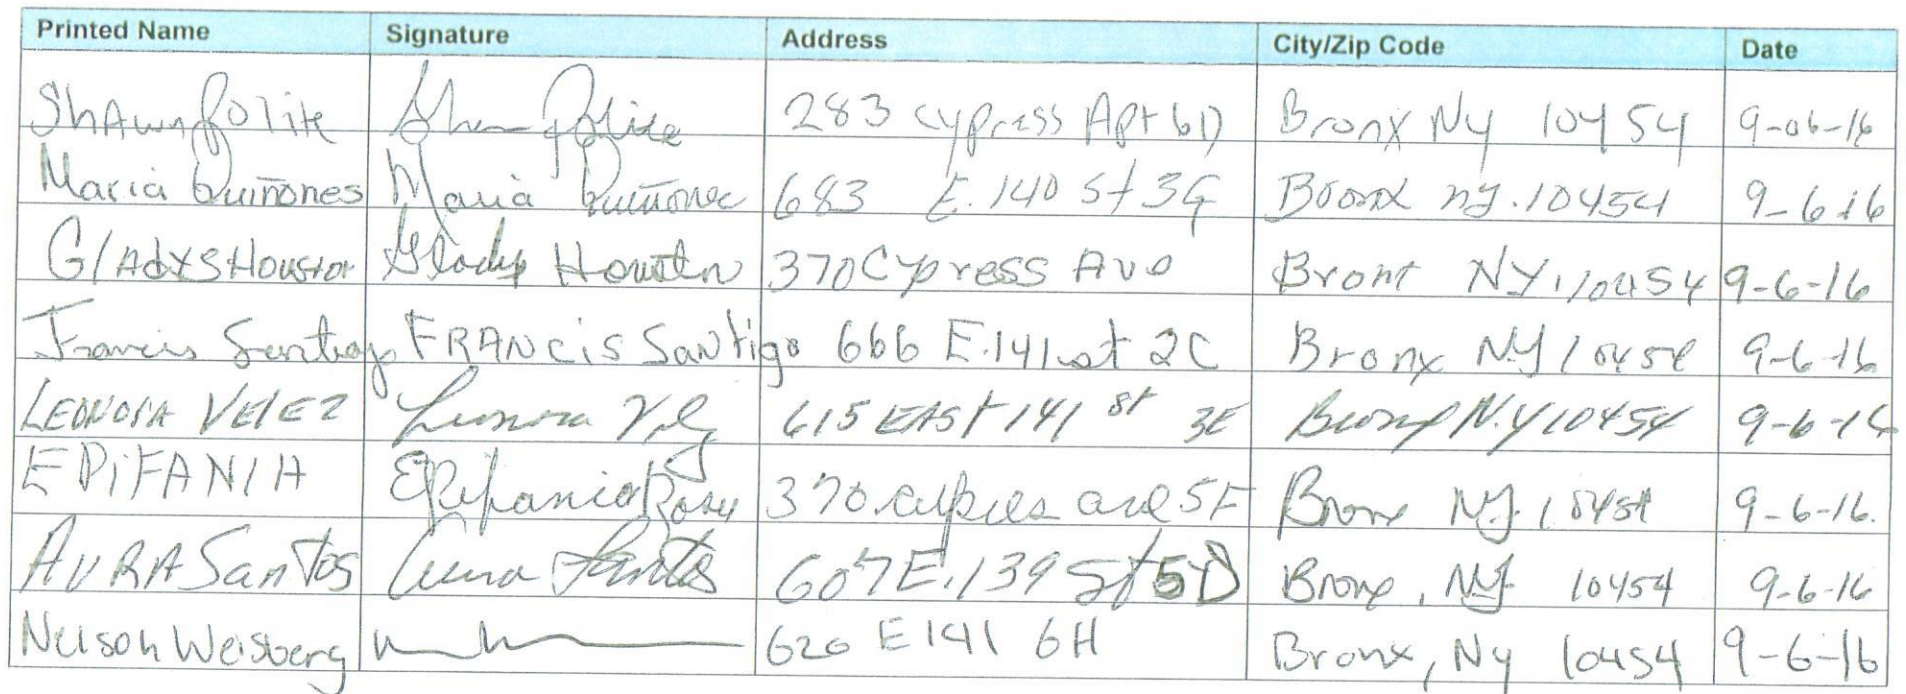 Printed Name Signature Address City/Zip Code Date
Shawn Polite Shawn Polite 283 Cypress Apt 6D Bronx Ny 10454 9-06-16
Maria Quiñones Maria Quiñones 683 E. 140 St 3G Bronx ny. 10454 9-6-16
GlAdYS Houston Gladys Houston 370 Cypress Ave Bronx NY. 10454 9-6-16
Francis Santiago FRANcis Santigo 666 E. 141 st 2C Bronx NY 10454 9-6-16
LEONORA VELEZ Leonora 615 EAST 141 st 3E Bronx N.Y 10454 9-6-16
EPiFANIA Epifania 370 ave 5F Bronx NY. 10454 9-6-16.
AURA Santos Aura Santos 607 E. 139 St 5D Bronx, NY 10454 9-6-16
Nelson Weisberg 620 E 141 6H Bronx, Ny 10454 9-6-16